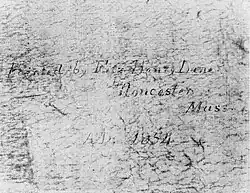 Painted by Fitz Henry Lane
Gloucester
Mass
A.D. 1854